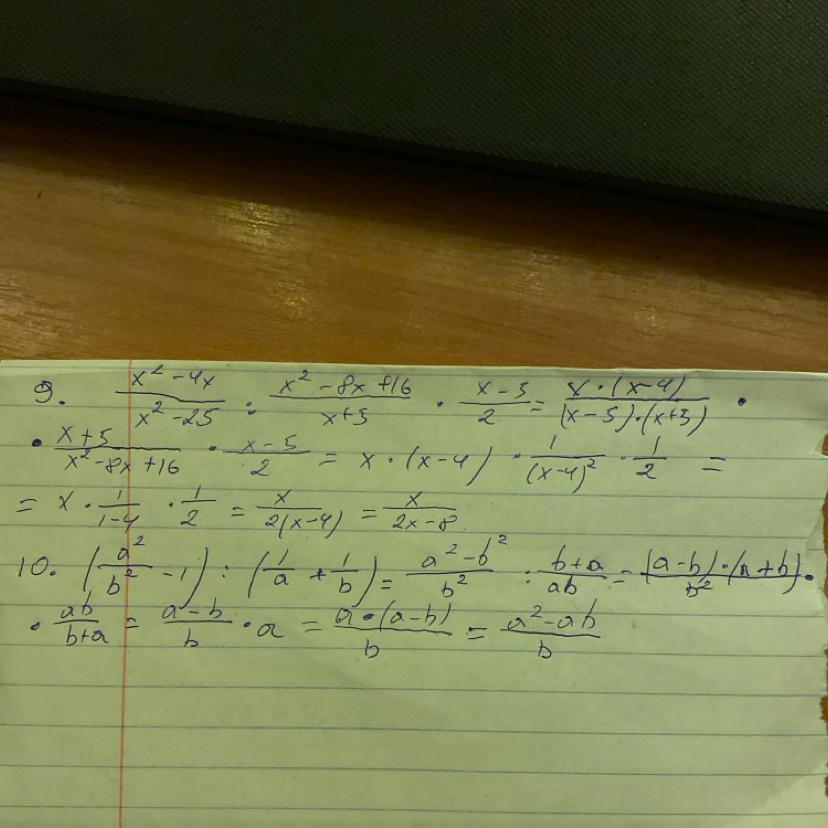 9. (x² - 4x)/(x² - 25) : (x² - 8x + 16)/(x + 5) · (x - 5)/2 = (x · (x - 4))/((x - 5) · (x + 5)) ·
· (x + 5)/(x² - 8x + 16) · (x - 5)/2 = x · (x - 4) · 1/(x - 4)² · 1/2 =
= x · 1/(1 - 4) · 1/2 = x/(2(x - 4)) = x/(2x - 8)
10. (a²/b² - 1) : (1/a + 1/b) = (a² - b²)/b² : (b + a)/(ab) = ((a - b) · (a + b))/b² ·
· (ab)/(b + a) = (a - b)/b · a = (a · (a - b))/b = (a² - ab)/b